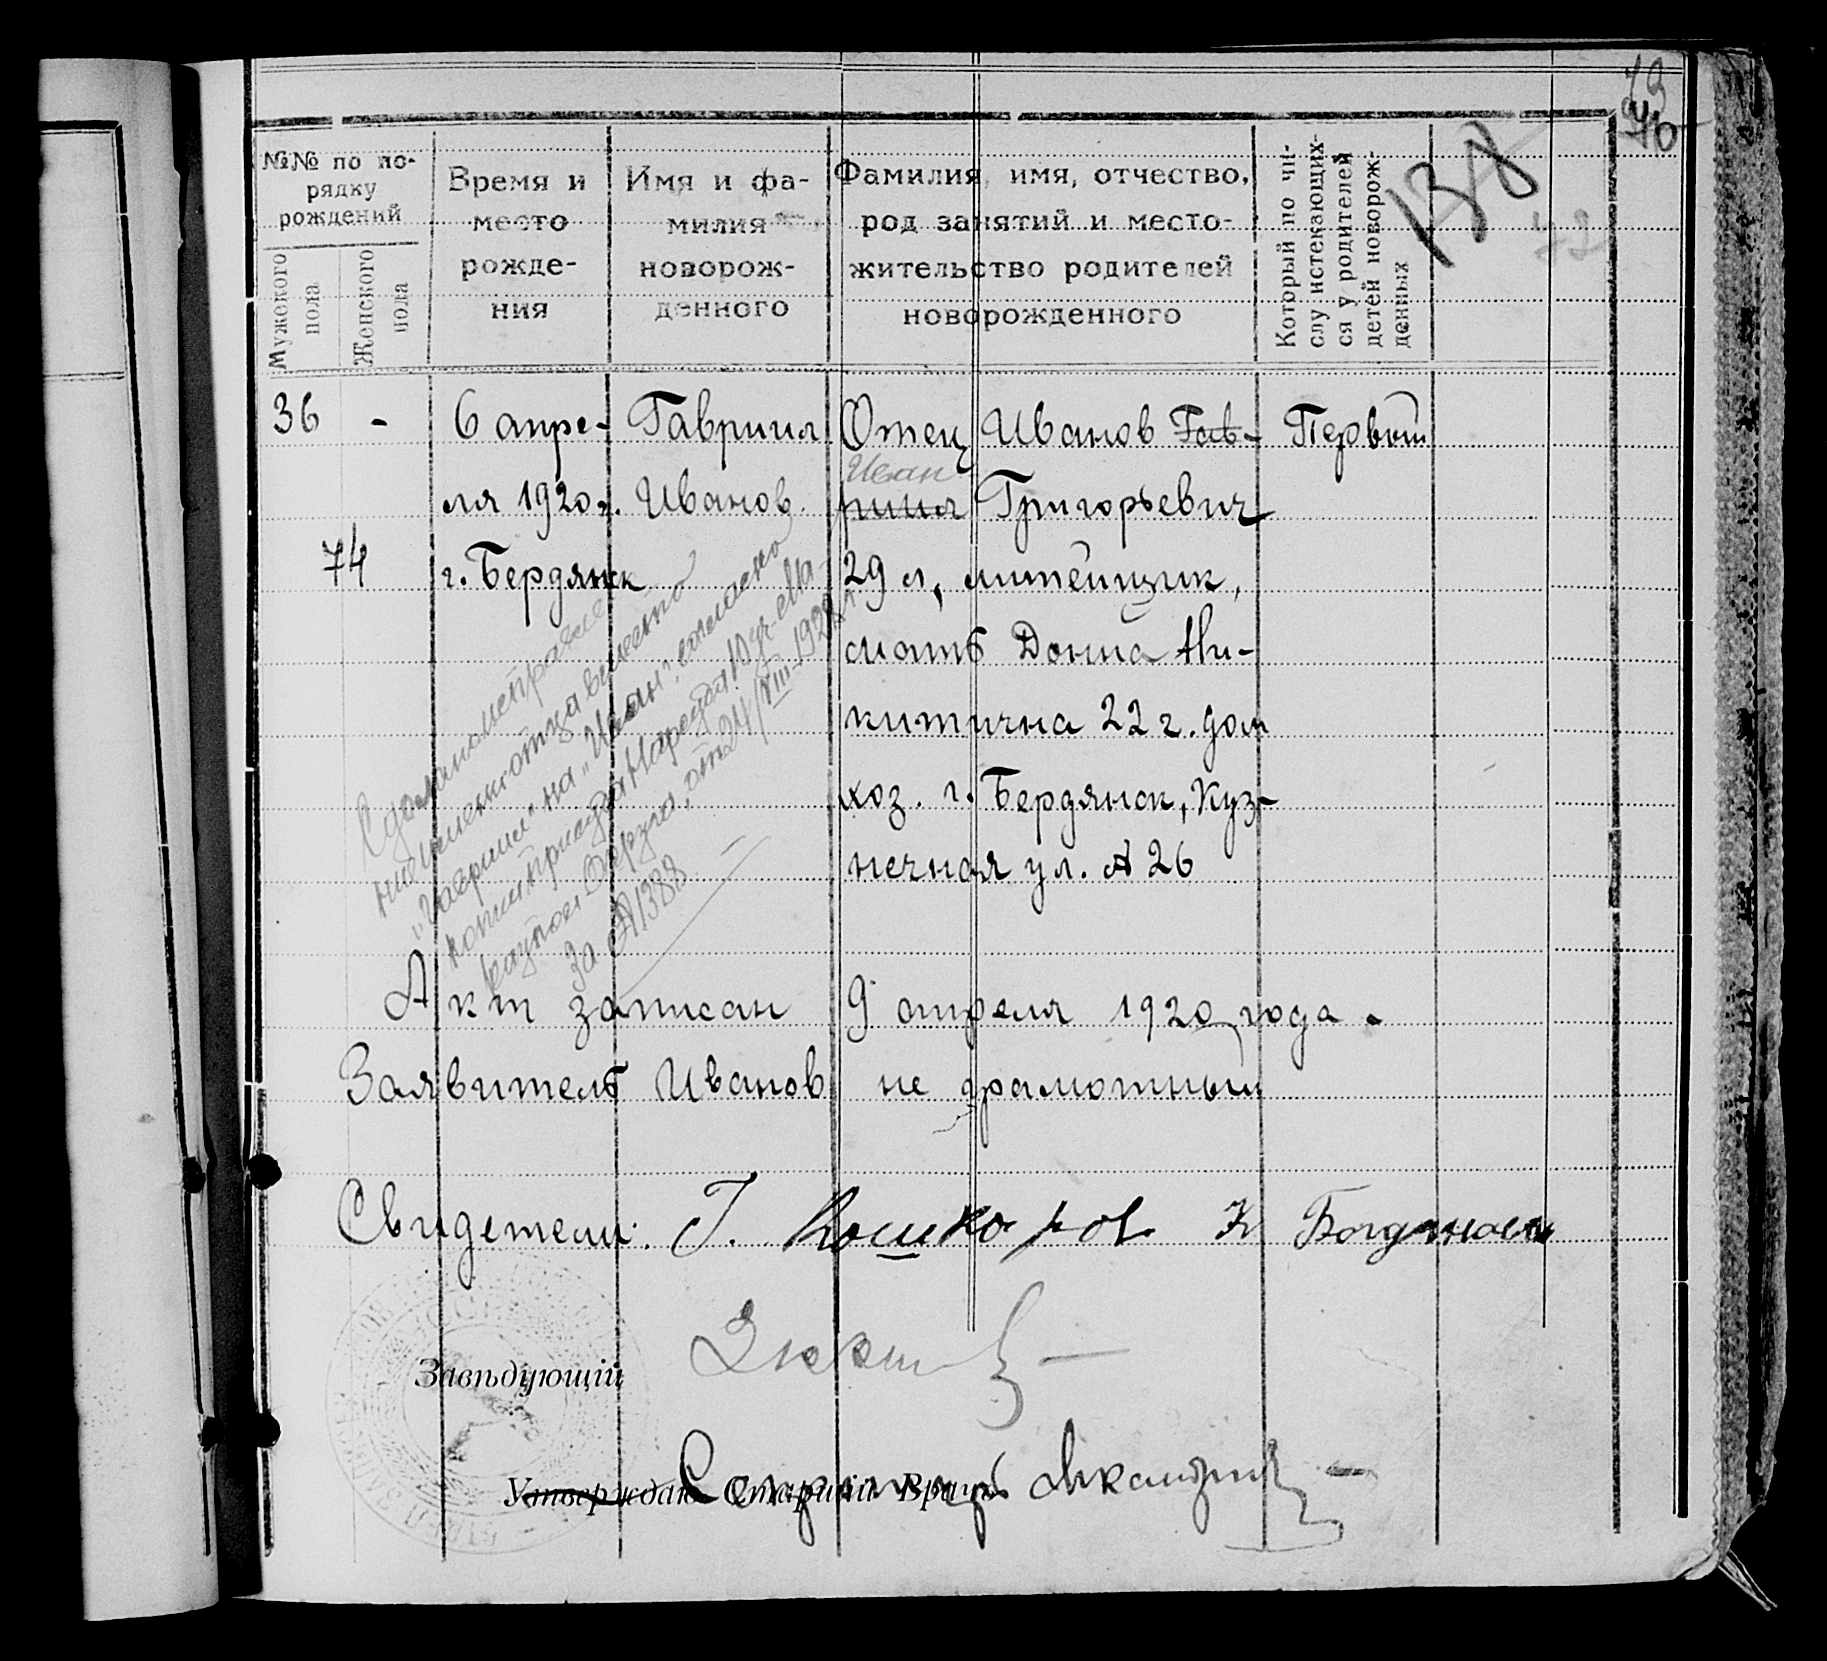 79
40
138
42
№№ по по-
рядку
рождений
Мужского
пола
Женского
пола
Время и
место
рожде-
ния
Имя и фа-
милия
новорож-
денного
Фамилия, имя, отчество,
род занятий и место-
жительство родителей
новорожденного
Который по чи-
слу истекающих-
ся у родителей
детей новорож-
денных
36 - 6 апре- Гавриил Отец Иванов Гав- Первый
Иван
ля 1920 г. Иванов риил Григорьевич
74 г. Бердянск 29 л, литейщик,
мать Домна Ни-
китична 22 г. дом
хоз. г. Бердянск, Куз-
нечная ул. № 26
Сделано исправле
ние имени отца вместо
"Гавриил" на "Иван" согласно
копии приказа Нарсуда 10 уч. Ма-
от 24/VIII-1928 г.
за № 1388
Акт записан 9 апреля 1920 года.
Заявитель Иванов не грамотный
Свидетели: Г. Кошкаров К Богданов
Завѣдующій
Утверждаю Старшій Врачъ
Секретарь